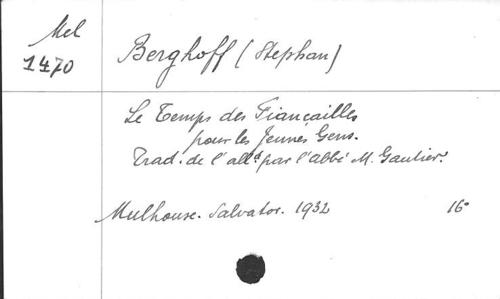 Mel
1470
Berghoff (Stephan)
Le Temps des Fiançailles
pour les Jeunes Gens.
Trad. de l'alld par l'abbé M. Gautier.
Mulhouse. Salvator. 1932 16°